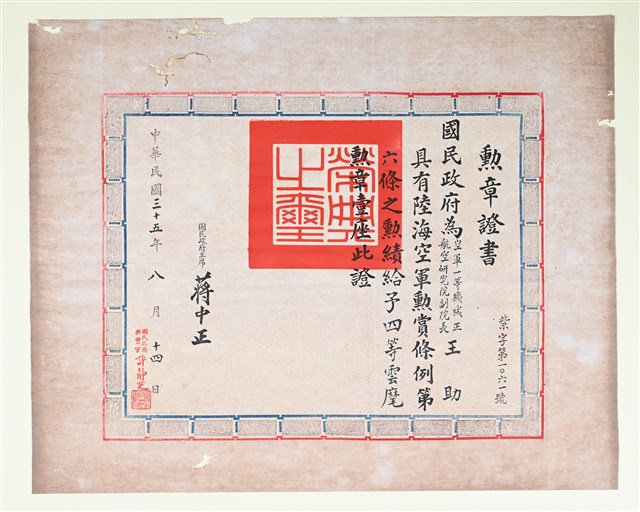 勲章證書
紫字第一〇六一號
國民政府為空軍一等機械正航空研究院副院長王助
具有陸海空軍勲賞條例第
六條之勲績給予四等雲麾
勲章壹座此證
榮典之璽
國民政府主席
蔣中正
中華民國三十五年八月十四日
國民政府